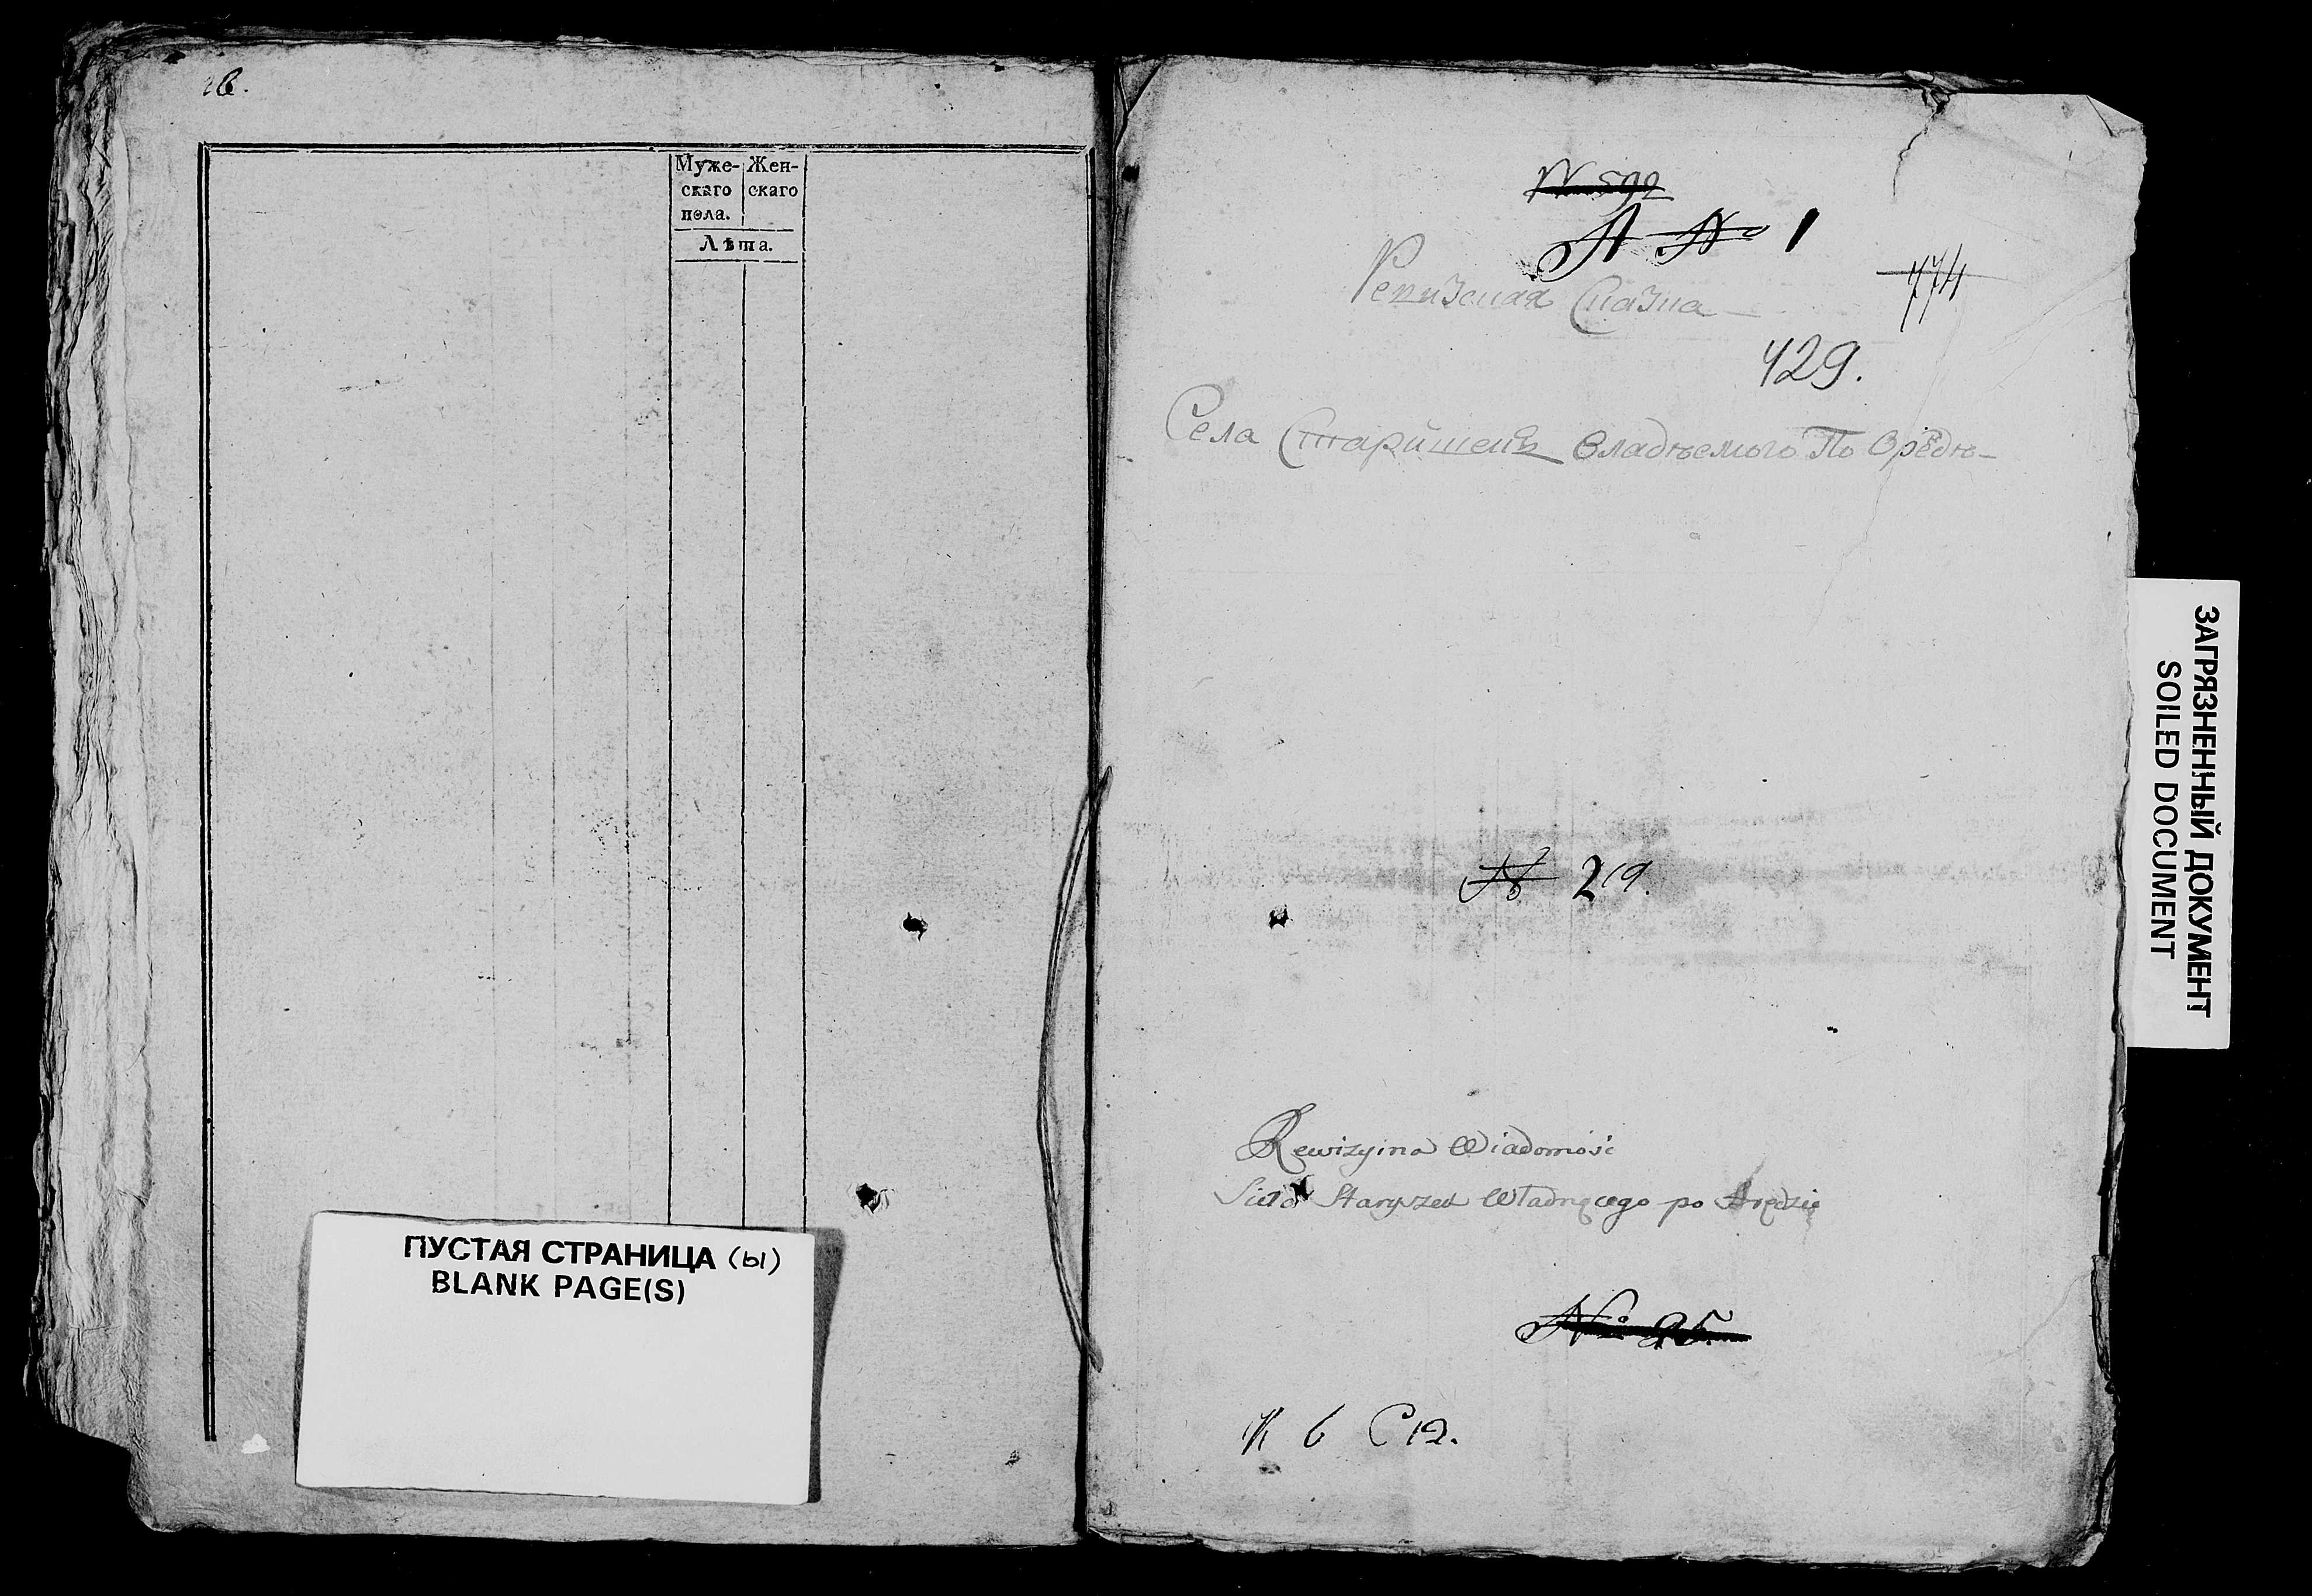 Муже- Жен-
скаго скаго
пола.
Лѣта.
ПУСТАЯ СТРАНИЦА (ы)
BLANK PAGE(S)
N 592
А № 1
774
Ревизская Сказка
429.
Села Старишекъ Владѣемого По Орѣдѣ
№ 219.
Rewizyina Wiadomość
Siela Staryszek Władnącego po Arędzie
№ 25.
К 6 С 12.
ЗАГРЯЗНЕННЫЙ ДОКУМЕНТ
SOILED DOCUMENT